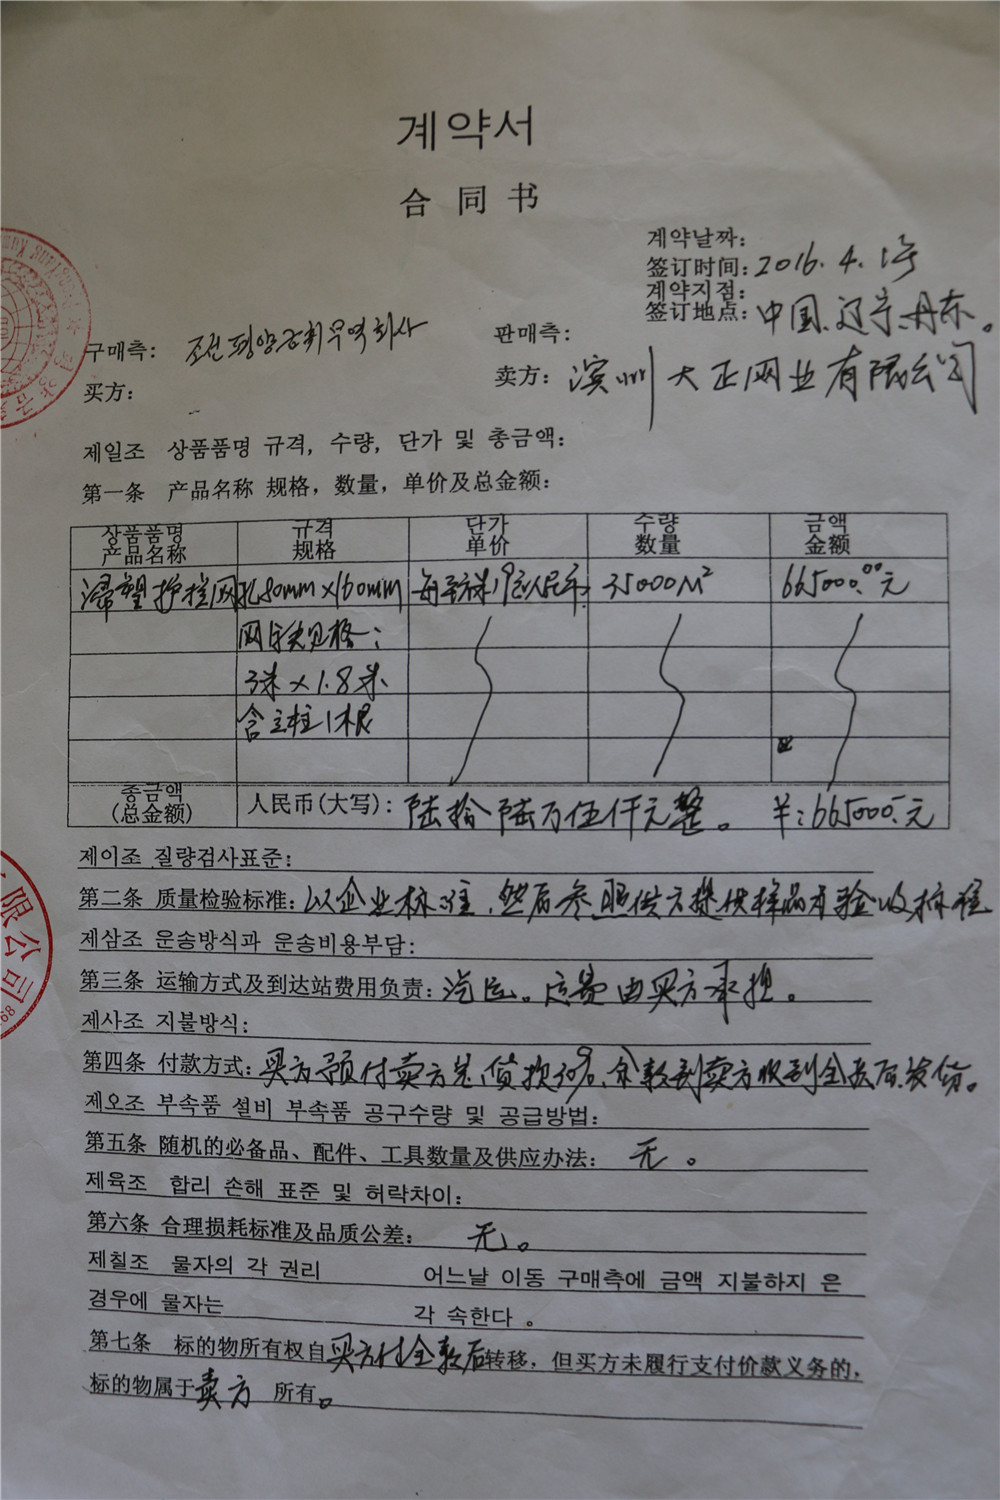 계약서
合同书
계약날짜:
签订时间: 2016.4.1号
계약지점:
签订地点: 中国.辽宁.丹东。
구매측: 조선평양 무역회사
买方:
판매측:
卖方: 滨州大正网业有限公司
제일조 상품품명 규격, 수량, 단가 및 총금액:
第一条 产品名称 规格，数量，单价及总金额:
상품품명 규격 단가 수량 금액
产品名称 规格 单价 数量 金额
塑护栏网 孔80mm×160mm 每平方米19元人民币 35000M² 665000.00元
网片规格:
3米×1.8米
含立柱1根
총금액
(总金额) 人民币(大写): 陆拾陆万伍仟元整。 ¥:665000.元
제이조 질량검사표준:
第二条 质量检验标准: 以企业标准.然后参照供方提供样品为验收标准
제삼조 운송방식과 운송비용부담:
第三条 运输方式及到达站费用负责: 汽运。运费由买方承担。
제사조 지불방식:
第四条 付款方式: 买方预付卖方总货款30%,余款到卖方收到全款后发货。
제오조 부속품 설비 부속품 공구수량 및 공급방법:
第五条 随机的必备品、配件、工具数量及供应办法: 无。
제육조 합리 손해 표준 및 허락차이:
第六条 合理损耗标准及品质公差: 无。
제칠조 물자의 각 권리 어느날 이동 구매측에 금액 지불하지 은
경우에 물자는 각 속한다 。
第七条 标的物所有权自买方付全款后转移，但买方未履行支付价款义务的，
标的物属于卖方 所有。
限公司